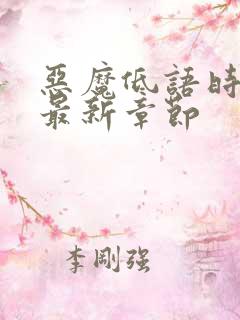 惡魔低語時
最新章節
李剛强